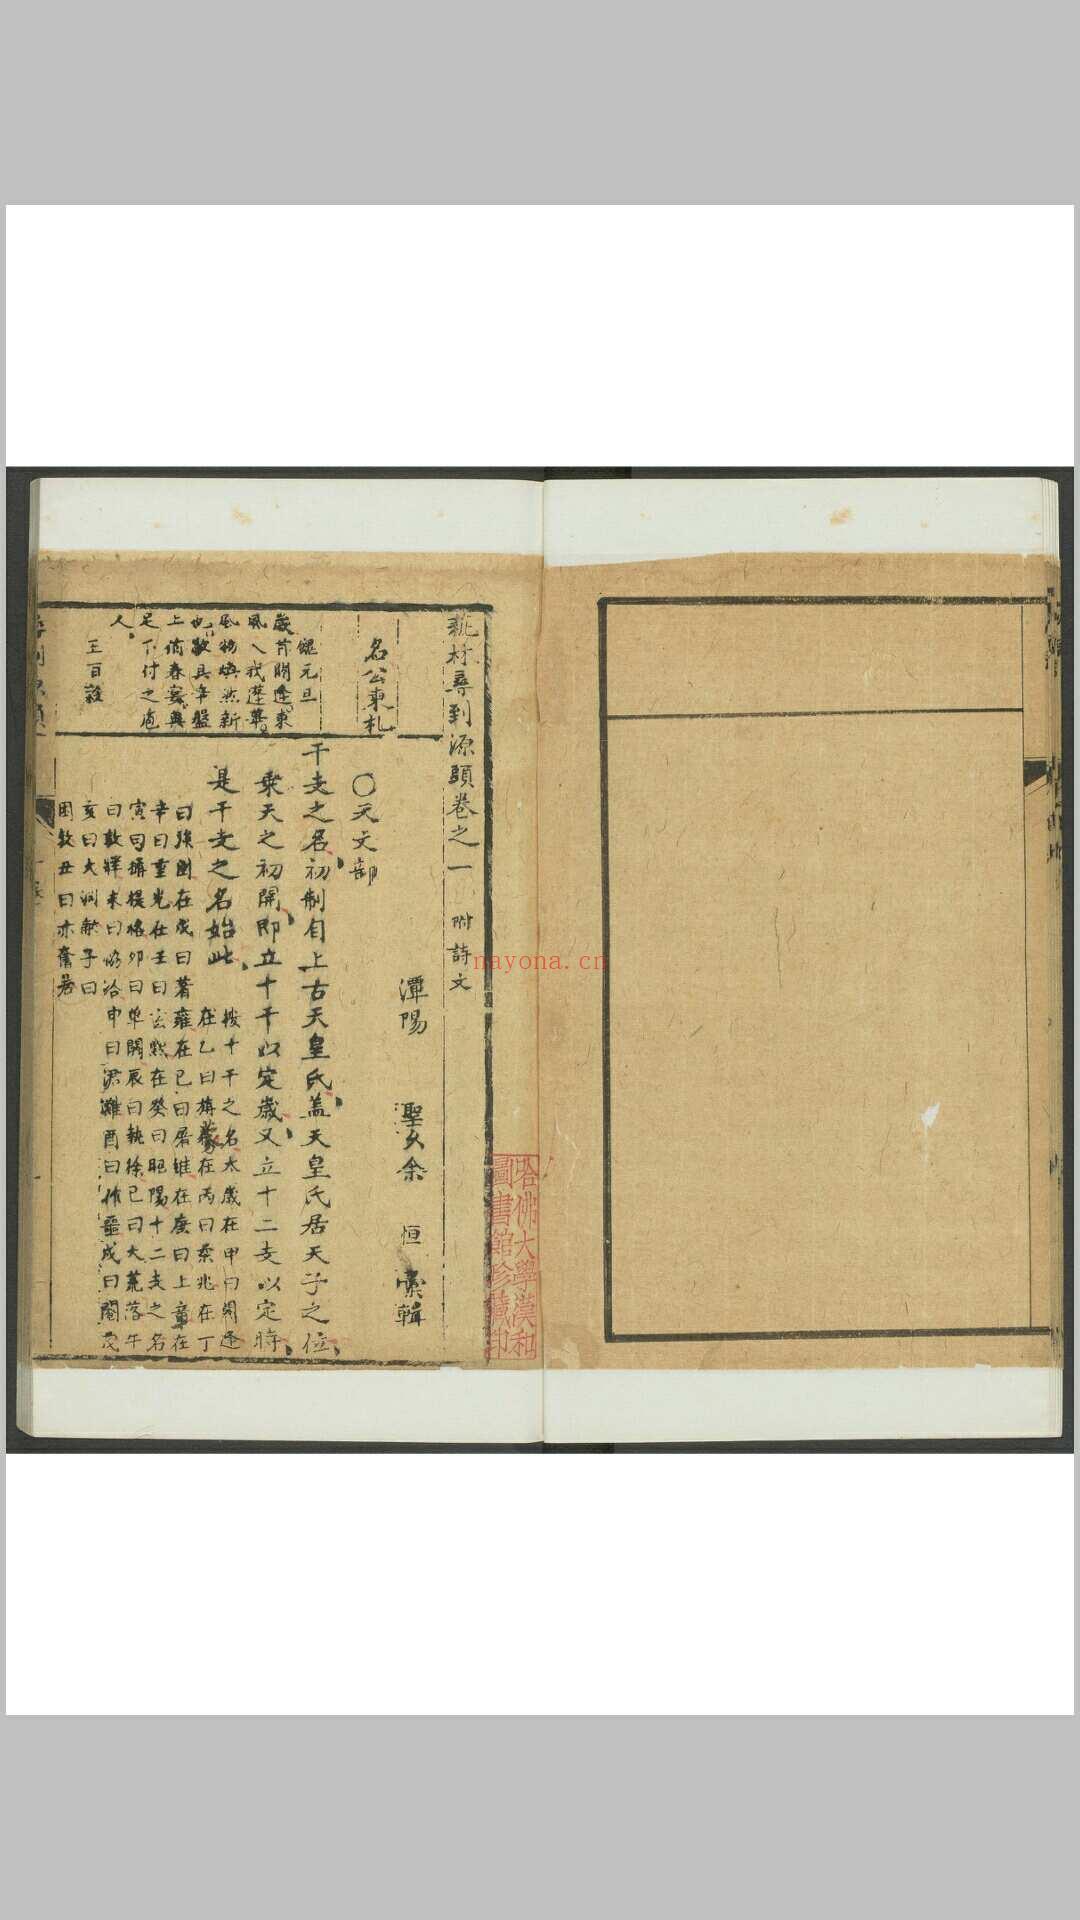 新材尋到源頭卷之一 附詩文
潭陽 聖久余 恒 彚輯
○天文部
干支之名初制自上古天皇氏盖天皇氏居天子之位
乘天之初開即立十干以定歲又立十二支以定時
是干支之名始此
按十干之名太歲在甲曰閼逢
在乙曰旃蒙在丙曰柔兆在丁
曰強圉在戊曰著雍在己曰屠維在庚曰上章在
辛曰重光在壬曰玄黓在癸曰昭陽十二支之名
寅曰攝提格卯曰單閼辰曰執徐巳曰大荒落午
曰敦牂未曰協洽申曰涒灘酉曰作噩戌曰閹茂
亥曰大淵獻子曰
困敦丑曰赤奮若
名公柬札
餽元旦
歲昔閼逢東
風入我蓬蓽
風物煥然新
也敬具辛盤
上俏春寰與
足下付之庖
人
王百榖
哈佛大學漢和
圖書館珍藏印
nayona.cn